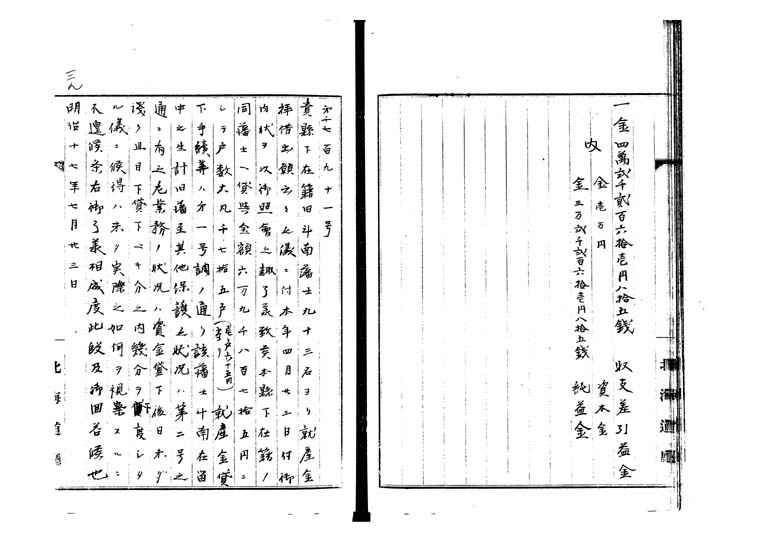 一金四萬弐千貳百六拾壱円八拾五銭 収支差引益金
内
金壱万円 資本金
金三万弐千弐百六拾壱円八拾五銭 純益金
北海道廳
第十七百九十一号
貴縣下在籍旧斗南藩士九十三名ヨリ就産金
拝借出願云々之儀ニ付本年四月廿三日付御
内状ヲ以御照會之趣了承致候本縣下在籍ノ
同藩士ヘ貸與金額六万九千八百七拾五円ニ
シテ戸数大凡千七拾五戸 就産金貸
下手續等ハ第一号調ノ通リ該藩士斗南在留
中之生計旧藩主其他保護之状况ハ第二号之
通ニ有之尤業務ノ状况ハ資金貸下後日未ダ
浅ク且目下貸下 分之内幾分ヲ 度シタ
ル儀ニ候得ハ未タ実際之如何ヲ視察スルニ
不遑候条右御了承相成度此段及御回答候也
明治十七年七月廿三日
北海道廳
三九